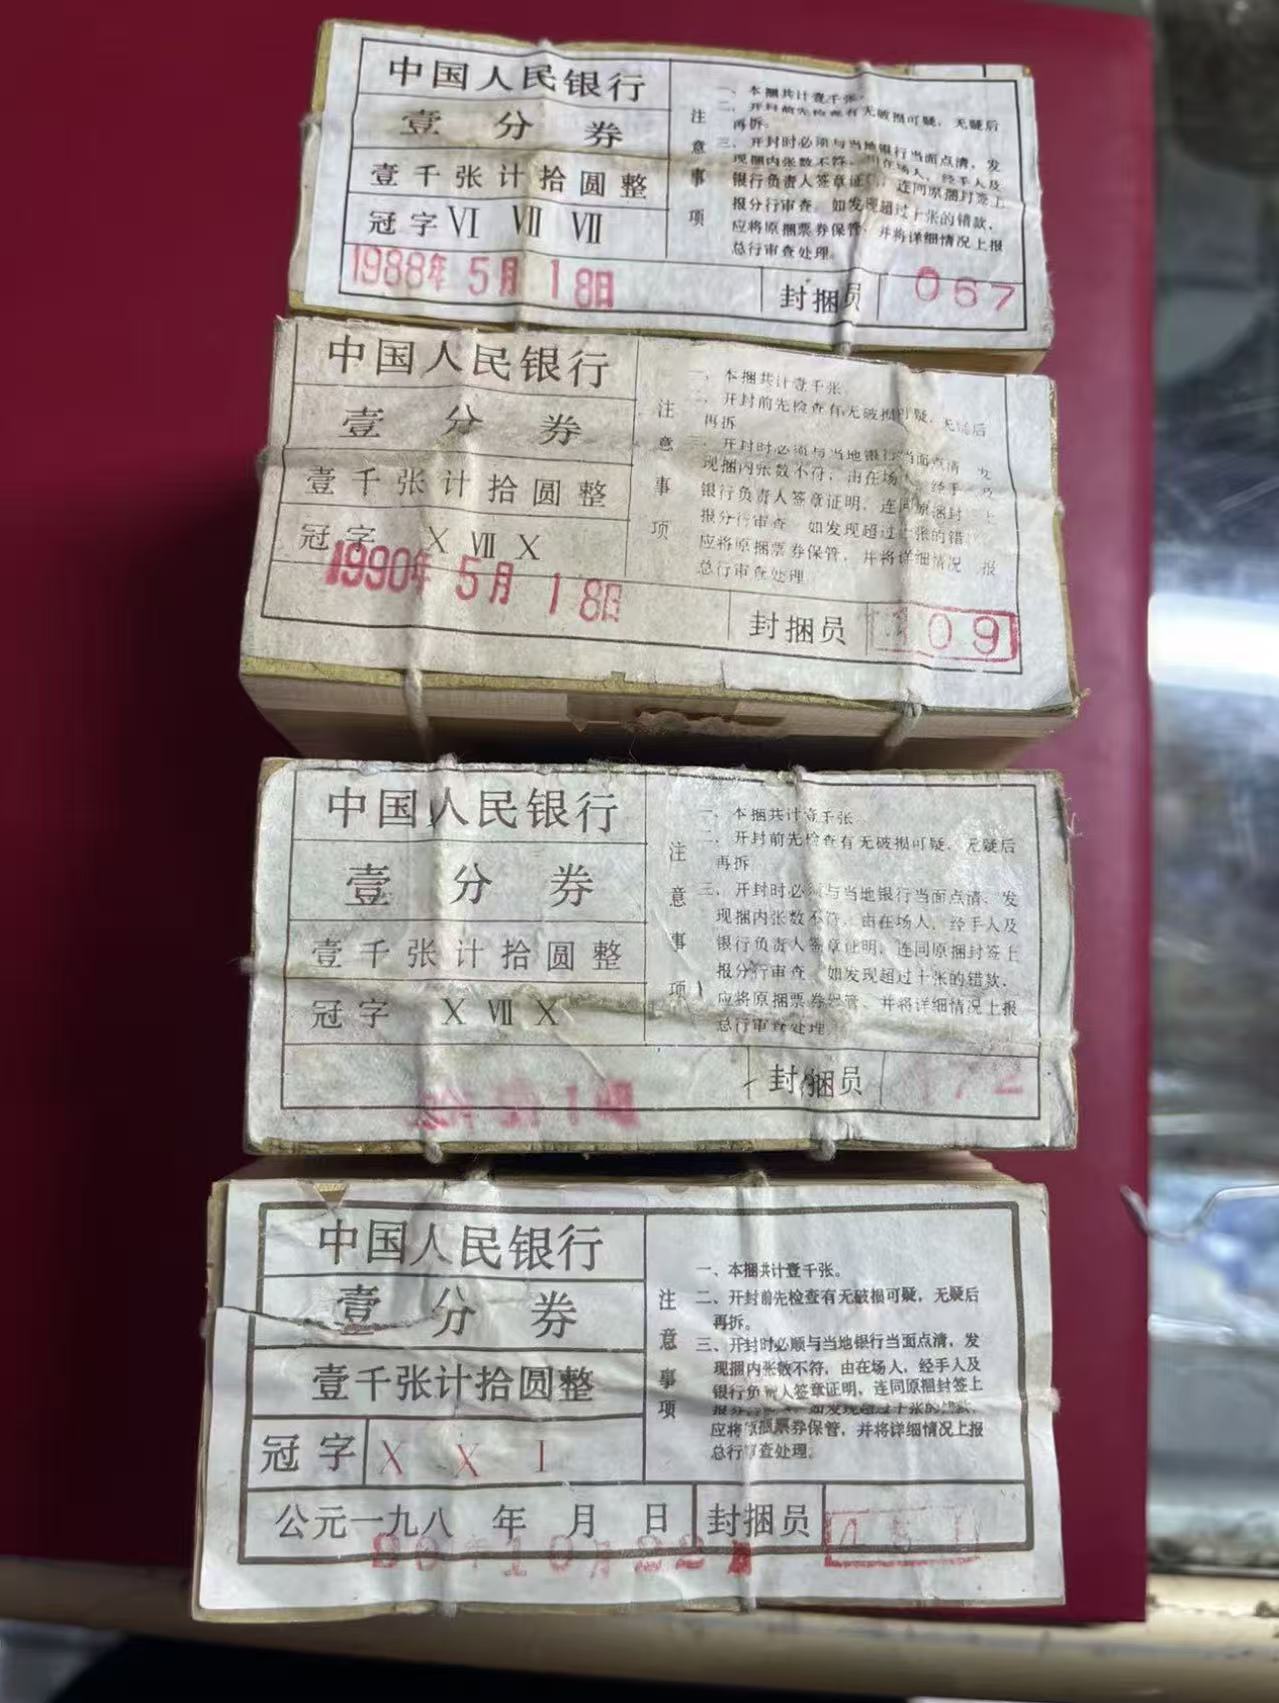 中国人民银行
壹分券
壹千张计拾圆整
冠字 VI VII VII
1988年5月18日
注意事项
一、本捆共计壹千张。
二、开封前先检查有无破损可疑，无疑后
再拆。
三、开封时必须与当地银行当面点清，发
现捆内张数不符，由在场人、经手人及
银行负责人签章证，连同原捆封签上
报分行审查。如发现超过十张的错款，
应将原捆票券保管，并将详细情况上报
总行审查处理。
封捆员 067
中国人民银行
壹分券
壹千张计拾圆整
冠字 X VII X
1990年5月18日
注意事项
一、本捆共计壹千张
二、开封前先检查有无破损可疑，无疑后
再拆
三、开封时必须与当地银行当面点清 发
现捆内张数不符，由在场人 经手 及
银行负责人签章证明，连同原捆封 上
报分行审查 如发现超过十张的错
应将原捆票券保管，并将详细情况 报
总行审查处理
封捆员 109
中国人民银行
壹分券
壹千张计拾圆整
冠字 X VII X
注意事项
一、本捆共计壹千张
二、开封前先检查有无破损可疑，无疑后
再拆
三、开封时必须与当地银行当面点清、发
现捆内张数不符，由在场人、经手人及
银行负责人签章证明，连同原捆封签上
报分行审查 如发现超过十张的错款，
应将原捆票券保管、并将详细情况上报
总行审查处理
封捆员 172
中国人民银行
壹分券
壹千张计拾圆整
冠字 X X I
公元一九八 年 月 日
90年10月22日
注意事项
一、本捆共计壹千张。
二、开封前先检查有无破损可疑，无疑后
再拆。
三、开封时必顺与当地银行当面点清，发
现捆内张数不符，由在场人，经手人及
银行负责人签章证明，连同原捆封签上
报分 如发现超过十张的错款，
应将原捆票券保管，并将详细情况上报
总行审查处理。
封捆员 451